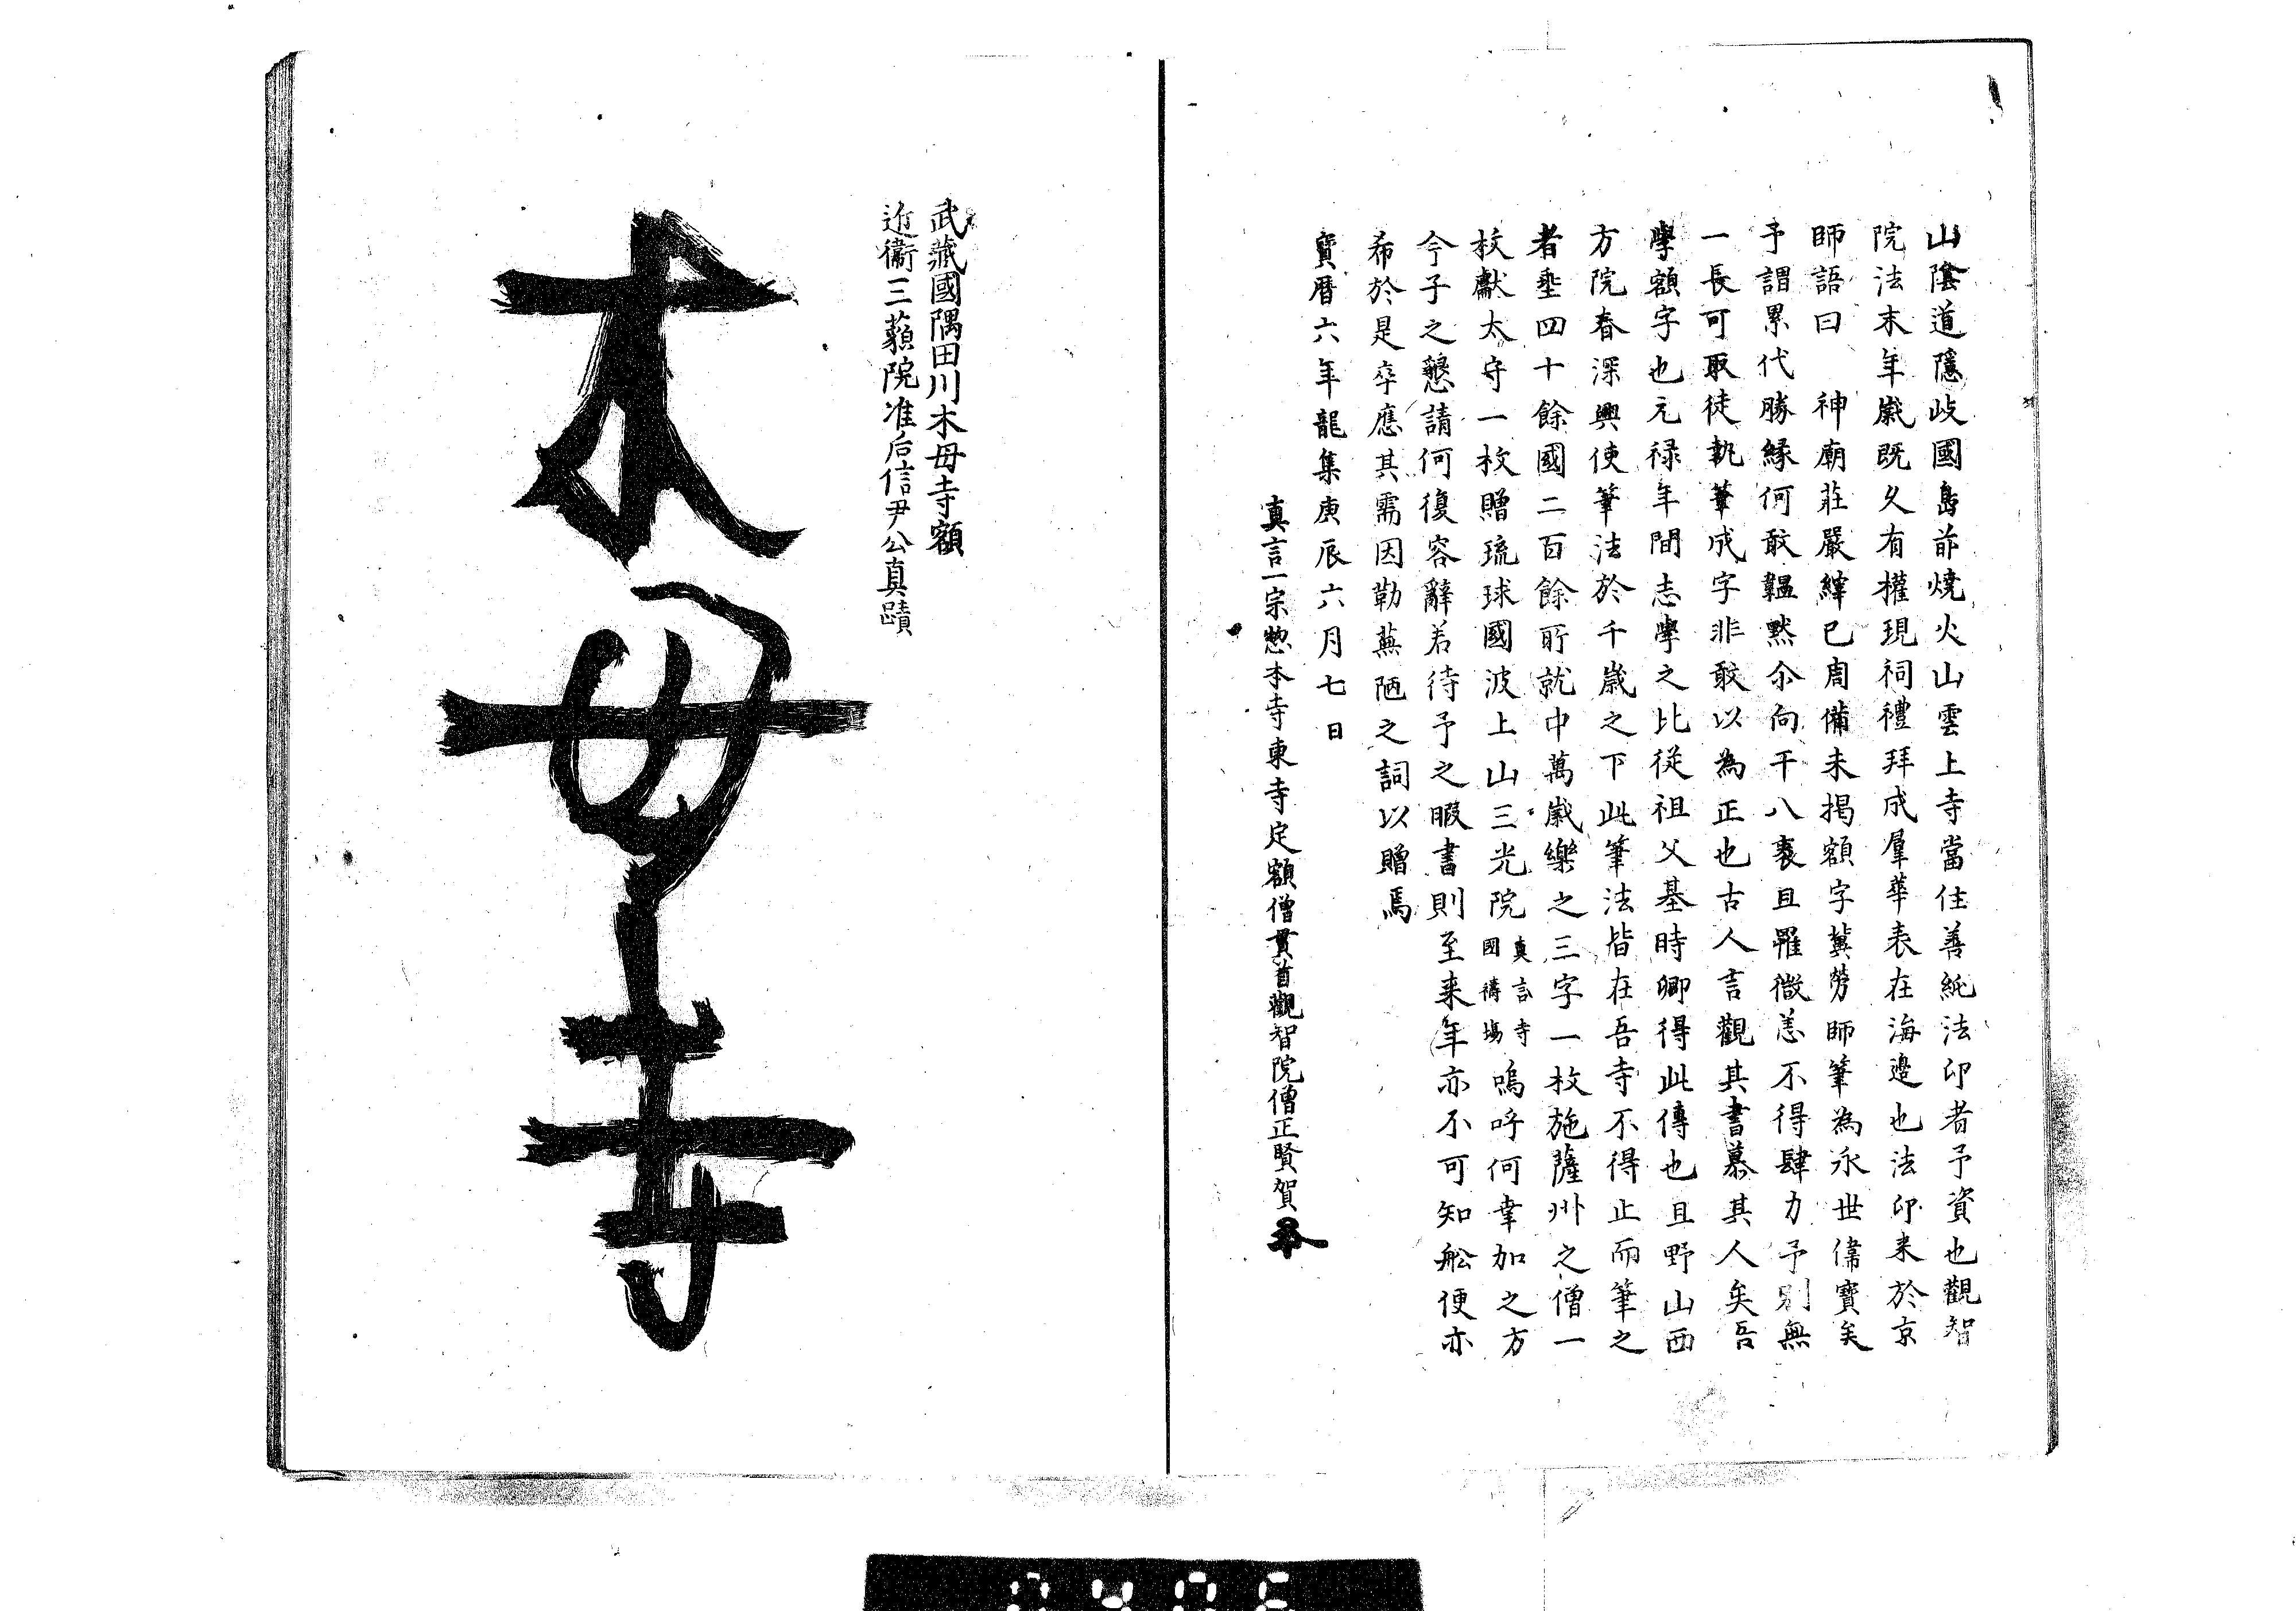 山陰道隱岐國島前燒火山雲上寺當住善純法印者予資也觀智
院法末年歲既久有權現祠禮拜成羣華表在海邊也法印来於京
師語曰　神廟莊嚴繹已周備未掲額字冀勞師筆為永世偉寶矣
予謂累代勝縁何敢韞黙尒向于八袠且罹微恙不得肆力予別無
一長可取徒執筆成字非敢以為正也古人言觀其書慕其人矣吾
學額字也元禄年間志學之比從祖父基時卿得此傳也且野山西
方院春深興使筆法於千歲之下此筆法皆在吾寺不得止而筆之
者埀四十餘國二百餘所就中萬歲樂之三字一枚施薩州之僧一
枚獻太守一枚贈琉球國波上山三光院真言寺國禱場嗚呼何幸加之方
今子之懇請何復容辭若待予之暇書則至来年亦不可知舩便亦
希於是卒應其需因勒蕪陋之詞以贈焉
寶暦六年龍集庚辰六月七日
真言一宗惣本寺東寺定額僧貫首觀智院僧正賢賀
武藏國隅田川木母寺額
近衞三藐院准后信尹公真蹟
木母寺